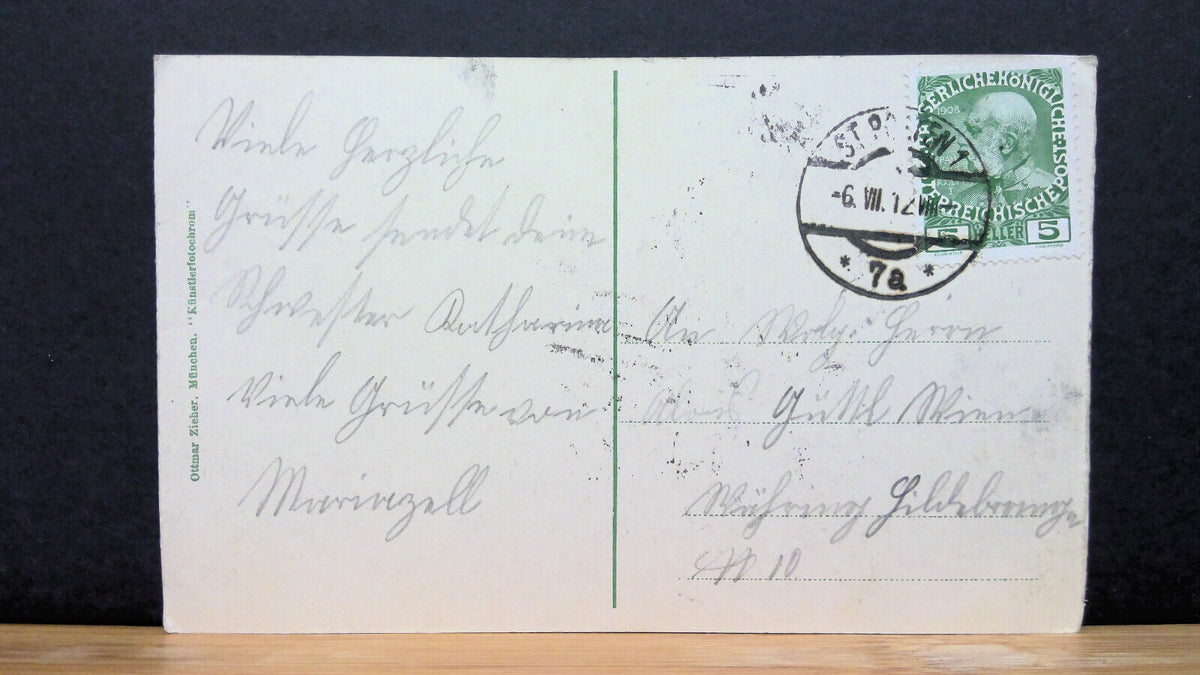 Viele Herzliche
Grüsse sendet dein
Schwester Katharina
Viele Grüsse von
Mariazell
Ottmar Zieher, München. "Künstlerfotochrom"
ST. PÖLTEN 1
-6. VIII. 12 VIII-
* 7a *
KAISERLICHE KÖNIGLICHE ÖSTERREICHISCHE POST
1908
5 HELLER 5
An Wolg. Herrn
Alois Güttl Wien
Währing Hildebrandg
10